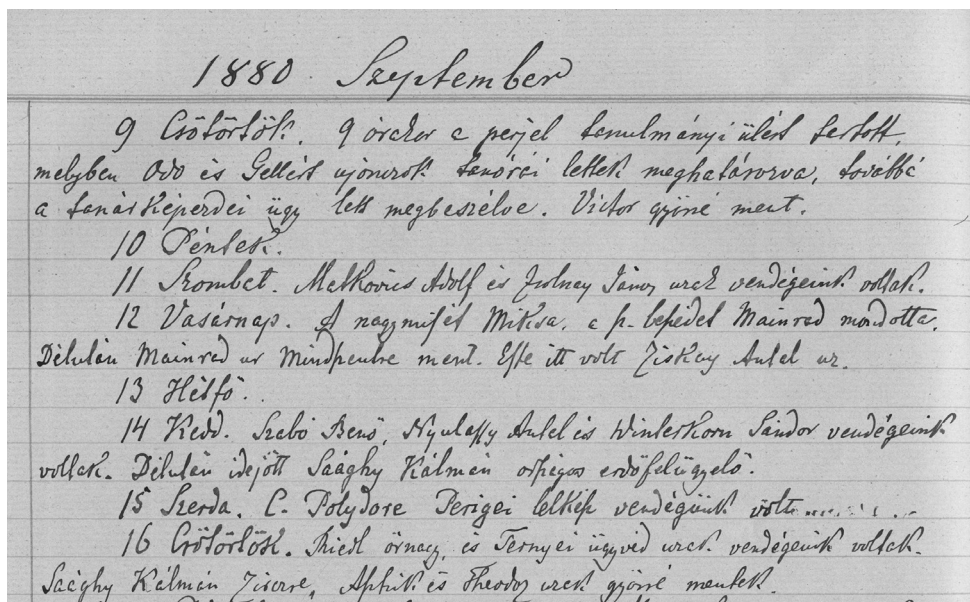 1880 September
9 Csötörtök. 9 órakor a perjel tanulmányi ülést tartott,
melyben Odo és Gellért újoncok tanórái lettek meghatározva, továbbá
a tanárképezdei ügy lett megbeszélve. Victor győrré ment.
10 Péntek.
11 Szombat. Matkovics Adolf és Zsolnay János urak vendégeink voltak.
12 Vasárnap. A nagymisét Miksa, a p. beszédet Mainrad mondotta.
Délután Mainrad ur Mindszentre ment. Este itt volt Ziskay Antal ur.
13 Hétfő.
14 Kedd. Szabó Benő, Nyulassy Antal és Winterkorn Sándor vendégeink
voltak. Délután idejött Saághy Kálmán országos erdőfelügyelő.
15 Szerda. C. Polydore Perigei lelkész vendégünk volt
16 Csötörtök. Riedl őrnagy, és Ternyei ügyvéd urak vendégeink voltak.
Saághy Kálmán Zircre, és Theodoz urak győrré mentek.